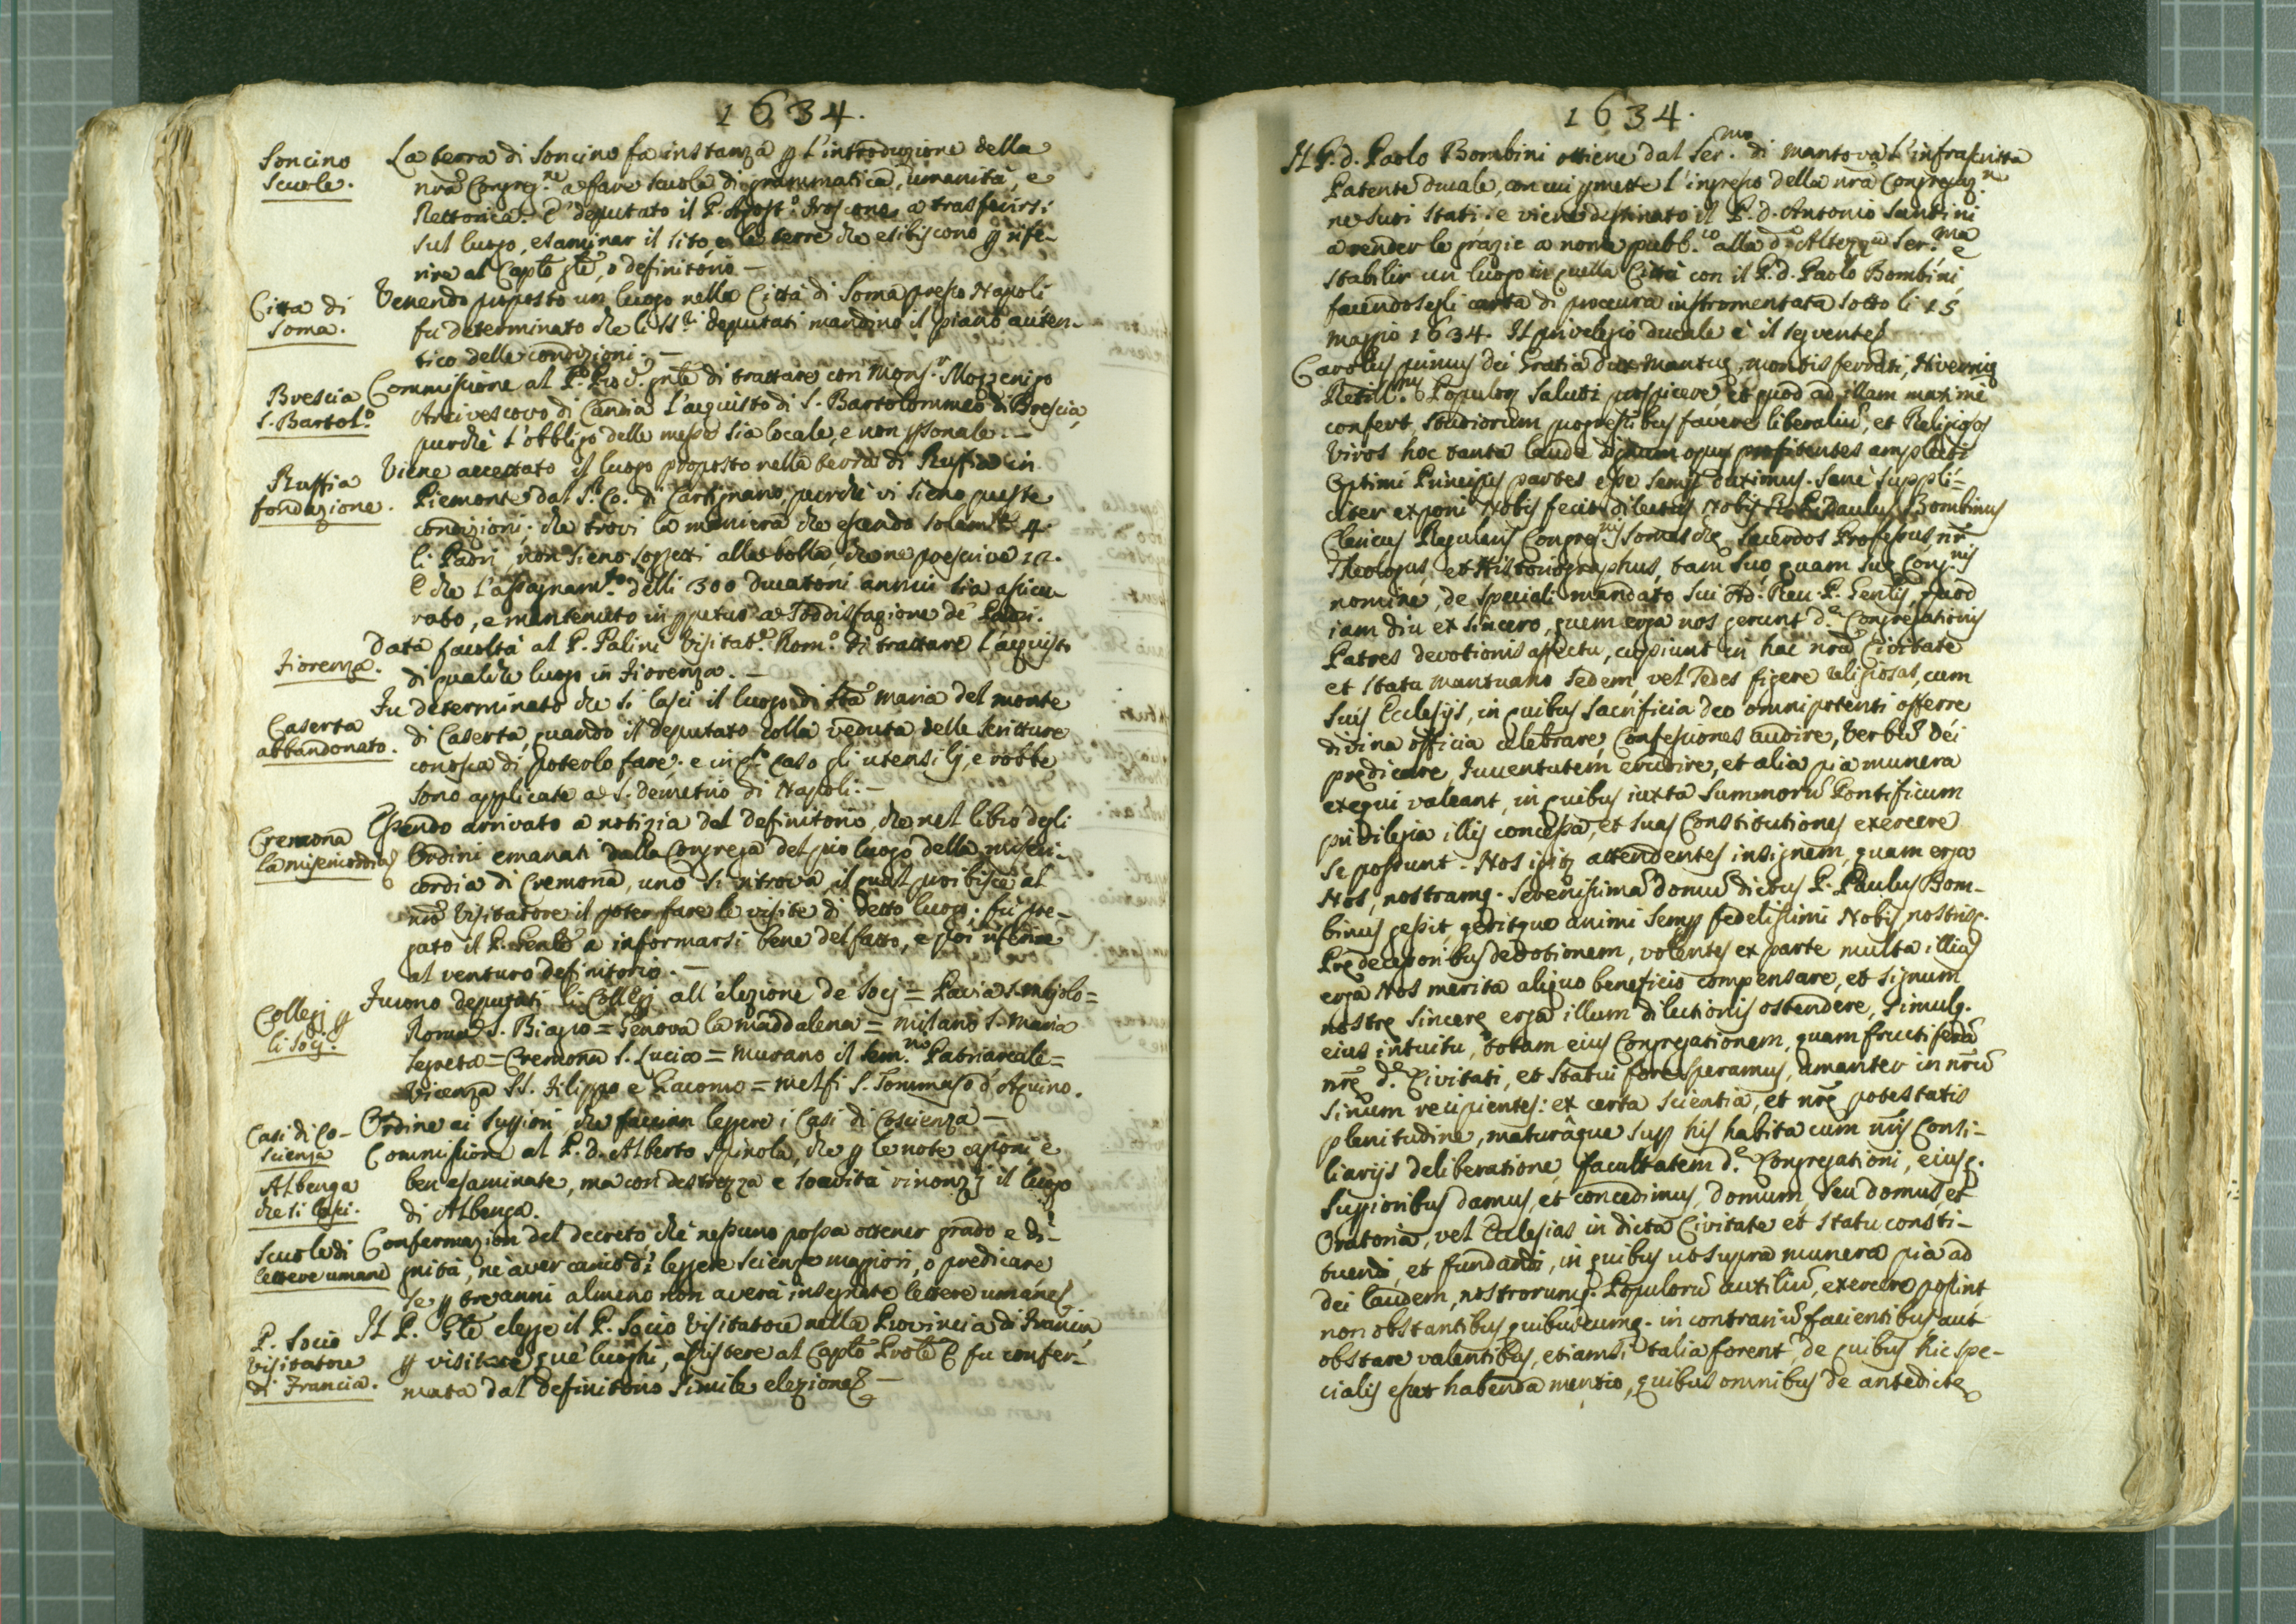 1634.
Soncino
scuole.
La terra di Soncino fa instanza p l'introduzione della
nrã Congreg.ne a fare scuole di grammatica, umanità, e
Rettorica. E' deputato il P. Agost.o a trasferirsi
sul luogo, esaminar il sito, e le terre che esibiscono p rife-
rire al Caplõ glẽ, o definitorio. —
Citta di
Soma.
Venendo proposto un luogo nella Città di Soma presso Napoli,
fu determinato che li SS.ri deputati mandino il piano auten-
tico delle condizioni. —
Brescia
S. Bartol.o
Commissione al P. di trattare con Mons.r Mozzenigo
Arcivescovo di Candia l'acquisto di S. Bartolommeo di Brescia,
purchè l'obbligo delle messe sia locale, e non psonale. —
Ruffia
fondazione.
Viene accettato il luogo proposto nella terra di Ruffia in
Piemonte dal S.r Co. di Cartignano, purchè vi sieno queste
condizioni; che trovi la maniera che essendo solam.te 4
li Padri, non sieno soggetti alla bolla, che ne prescrive 12.
E che l'assegnam.to delli 300 ducatoni annui sia assicu-
rato, e mantenuto in ppetuo a soddisfazione de' Padri.
Fiorenza.
Data facoltà al P. Palini Visitat.e Rom.o di trattare l'acquisto
di qualche luogo in Fiorenza. —
Caserta
abbandonato.
Fu determinato che si lasci il luogo di Stã Maria del monte
di Caserta, quando il deputato colla veduta delle scritture
conosca di poterlo fare; e in q.to caso gli utensilj, e robbe
sono applicate a S. Demetrio di Napoli. —
Cremona
la misericordia
Essendo arrivato a notizia del definitorio, che nel libro degli
Ordini emanati dalla Congrega del pio luogo della miseri-
cordia di Cremona, uno si ritrova, il qual proibisce al
nrõ Visitatore il poter fare le visite di detto luogo; fu pre-
gato il P. Genlẽ a informarsi bene del fatto, e poi riferire
al venturo definitorio. —
Collegj p
li Socj.
Furono deputati li Collegj all'elezione de Socj = Pavia S. Majolo =
Roma S. Biagio = Genova la maddalena = Milano S. Maria
Segreta = Cremona S. Lucia = Murano il Sem.rio Patriarcale =
Vicenza SS. Filippo e Giacomo = Melfi S. Tommaso d'Aquino.
Casi di Co-
scienza
Ordine ai Suppiori, che faccian leggere i Casi di Coscienza. —
Albenga
che si lasci.
Commissione al P. D. Alberto Spinola, che p le note cagioni, e
ben esaminate, ma con destrezza e soavità rinonzj il luogo
di Albenga.
Scuole di
lettere umane
Confermazion del decreto, che nessuno possa ottener grado e di-
gnità, nè aver carico di leggere scienze maggiori, o predicare
se p tre anni almeno non averà insegnate lettere umane.
P. Socio
Visitatore
di Francia.
Il P. Glẽ elegge il P. Socio Visitatore nella Provincia di Francia
p visitare que' luoghi, assistere al Caplõ Prolẽ E fu confer-
mata dal definitorio simile elezione. —
1634.
Il P. d. Paolo Bombini ottiene dal Ser.mo di Mantova l'infrascritta
Patente ducale, con cui pmette l'ingresso della nrã Congregaz.ne
ne suoi Stati: e viene destinato il P. d. Antonio Santini
a render le grazie a nome pubb.co alla d.a Altezza Ser.ma e
stabilir un luogo in quella Città con il P. d. Paolo Bombini,
facendosegli carta di procura instromentata sotto li 15
Maggio 1634. Il privilegio ducale è il seguente
Carolus primus Dei Gratia dux Mantuę, montis ferrati, Nivernię
Populoꝝ saluti prospicere et quod ad illam maxime
confert, studiorum progressibus favere liberaliũ, et Religiosos
viros hoc tanta laude dignum opus profitentes amplecti
Optimi Principis partes esse semp duximus. Sane suppli=
citer exponi Nobis fecit dilectus Nobis P. Paulus Bombinus
Clericus Regularis Congreg.nis Somaschę Sacerdos Professus nr̃
Theologus, et Historiographus, tam suo, quam suę Cong.nis
nomine, de speciali mandato sui Ad. Reu. P. Genlis, quod
iam diu ex sincero, quem erga nos gerunt d.ę Congregationis
Patres devotionis affectu, cupiunt in hac nrã Civitate
et statu Mantuano sedem, vel sedes figere religiosas, cum
suis Ecclesijs, in quibus sacrificia deo omnipotenti offerre
divina officia celebrare, Confessiones audire, Verbũ Dei
prędicare, Iuventutem erudire, et alia pia munera
exequi valeant, in quibus iuxta Summorũ Pontificum
privilegia illis concessa, et suas Constitutiones exercere
se possunt. Nos igitꝝ attendentes insignem, quam erga
Nos, nostramq. Serenissimã domũ dictus P. Paulus Bom-
binus gessit, geritque animi semp fedelissimi Nobis, nostrisq.
Prędecessoribus devotionem, volentes ex parte multa illius
erga Nos merita aliquo beneficio compensare, et signum
nostrę sincerę erga illum dilectionis ostendere, simulq.
eius intuitu, totam eius Congregationem, quam fructiferã
nrę d.ę Civitati, et Statui fore speramus, amanter in nrũ
sinum recipientes: ex certa scientia, et nrę potestatis
plenitudine, maturâque sup his habita cum nris Consi-
liarijs deliberatione, facultatem d.ę Congregationi, eiusq.
Suppioribus damus, et concedimus, domum, seu domus, et
Oratoria, vel Ecclesias in dicta Civitate et Statu consti-
tuendi, et fundandi, in quibus ut supra munera pia ad
Dei laudem, nostrorumq. Populorũ auxiliũ, exercere possint,
non obstantibus quibuscumq. in contrariũ facientibus, aut
obstare valentibus, etiamsi talia forent, de quibus hic spe-
cialis esset habenda mentio, quibus omnibus de antedictę